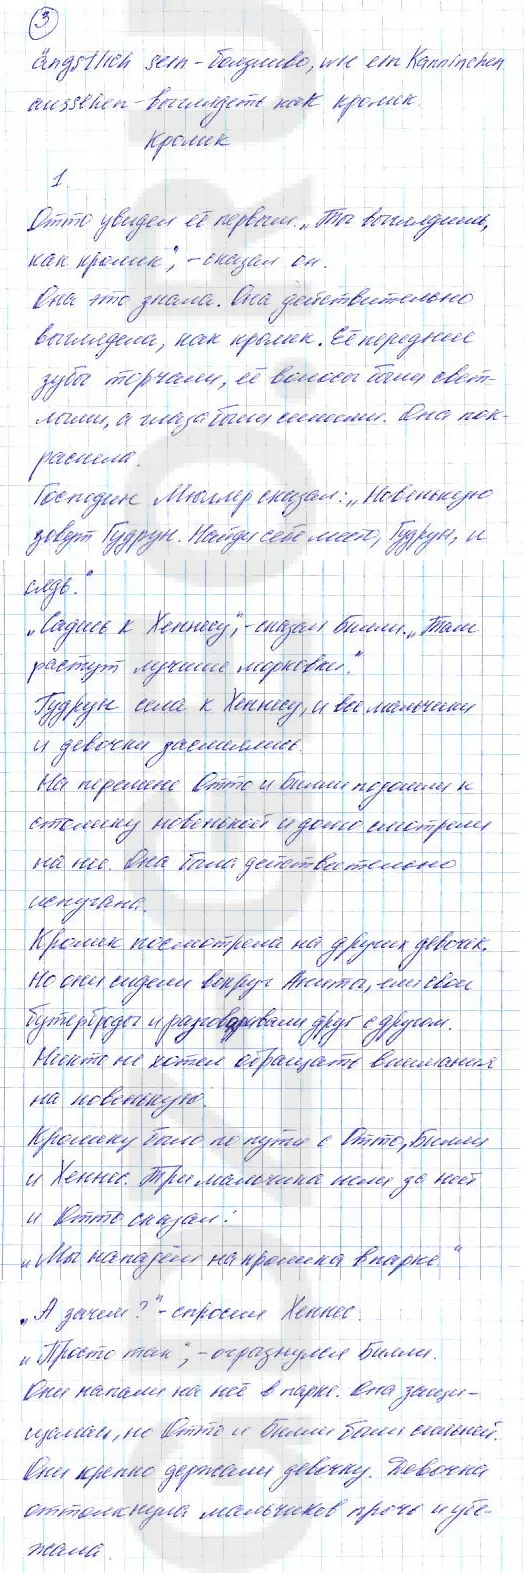 3
ängstlich sein - боязливо, wie ein Kanninchen
aussehen - выглядеть как кролик.
Кролик
1.
Отто увидел её первым. „Ты выглядишь,
как кролик", - сказал он.
Она это знала. Она действительно
выглядела, как кролик. Её передние
зубы торчали, её волосы были свет-
лыми, а глаза были синими. Она пок-
раснела.
Господин Мюллер сказал: „Новенькую
зовут Гудрун. Найди себе место, Гудрун, и
сядь."
„Садись к Хеннесу", - сказал Билли. „Там
растут лучшие морковки."
Гудрун села к Хеннесу, и все мальчики
и девочки засмеялись.
На перемене Отто и Билли подошли к
столику новенькой и долго смотрели
на неё. Она была действительно
испугана.
Кролик посмотрела на других девочек.
Но они сидели вокруг Аниты, ели свои
бутерброды и разговаривали друг с другом.
Никто не хотел обращать внимания
на новенькую.
Кролику было по пути с Отто, Билли
и Хеннес. Три мальчика шли за ней
и Отто сказал:
„Мы нападём на кролика в парке."
„А зачем?" - спросил Хеннес.
„Просто так", - огрызнулся Билли.
Они напали на неё в парке. Она защи-
щалась, но Отто и Билли были сильней.
Они крепко держали девочку. Девочка
оттолкнула мальчиков прочь и убе-
жала.